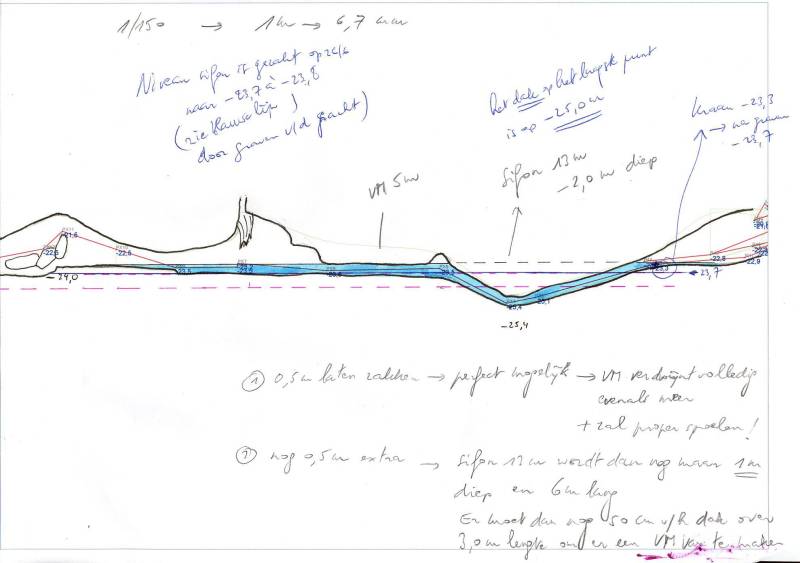 1/150 → 1m → 6,7 mm
Niveau sifon is gezakt op 26/6
naar -23,7 à -23,8
(zie Hausse lijn)
door graven v/d gracht)
het dak op het laagste punt
is op -25,0 m
Kraan -23,3
→ na graven
-23,7
Sifon 13 m
-2,0 m diep
VM 5m
-21,6
-22,6
-22,6
-24,0
-23,5
-25,4
-25,1
-23,3
-22,8
-22,9
← 23,7
-25,4
① 0,5m laten zakken → perfect mogelijk → VM verdwijnt volledig
evenals meer
+ zal proper spoelen!
② nog 0,5m extra → Sifon 13m wordt dan nog maar 1m
diep en 6m lang
Er moet dan nog 50 cm v/h dak over
3,0m lengte om er een VM van te maken